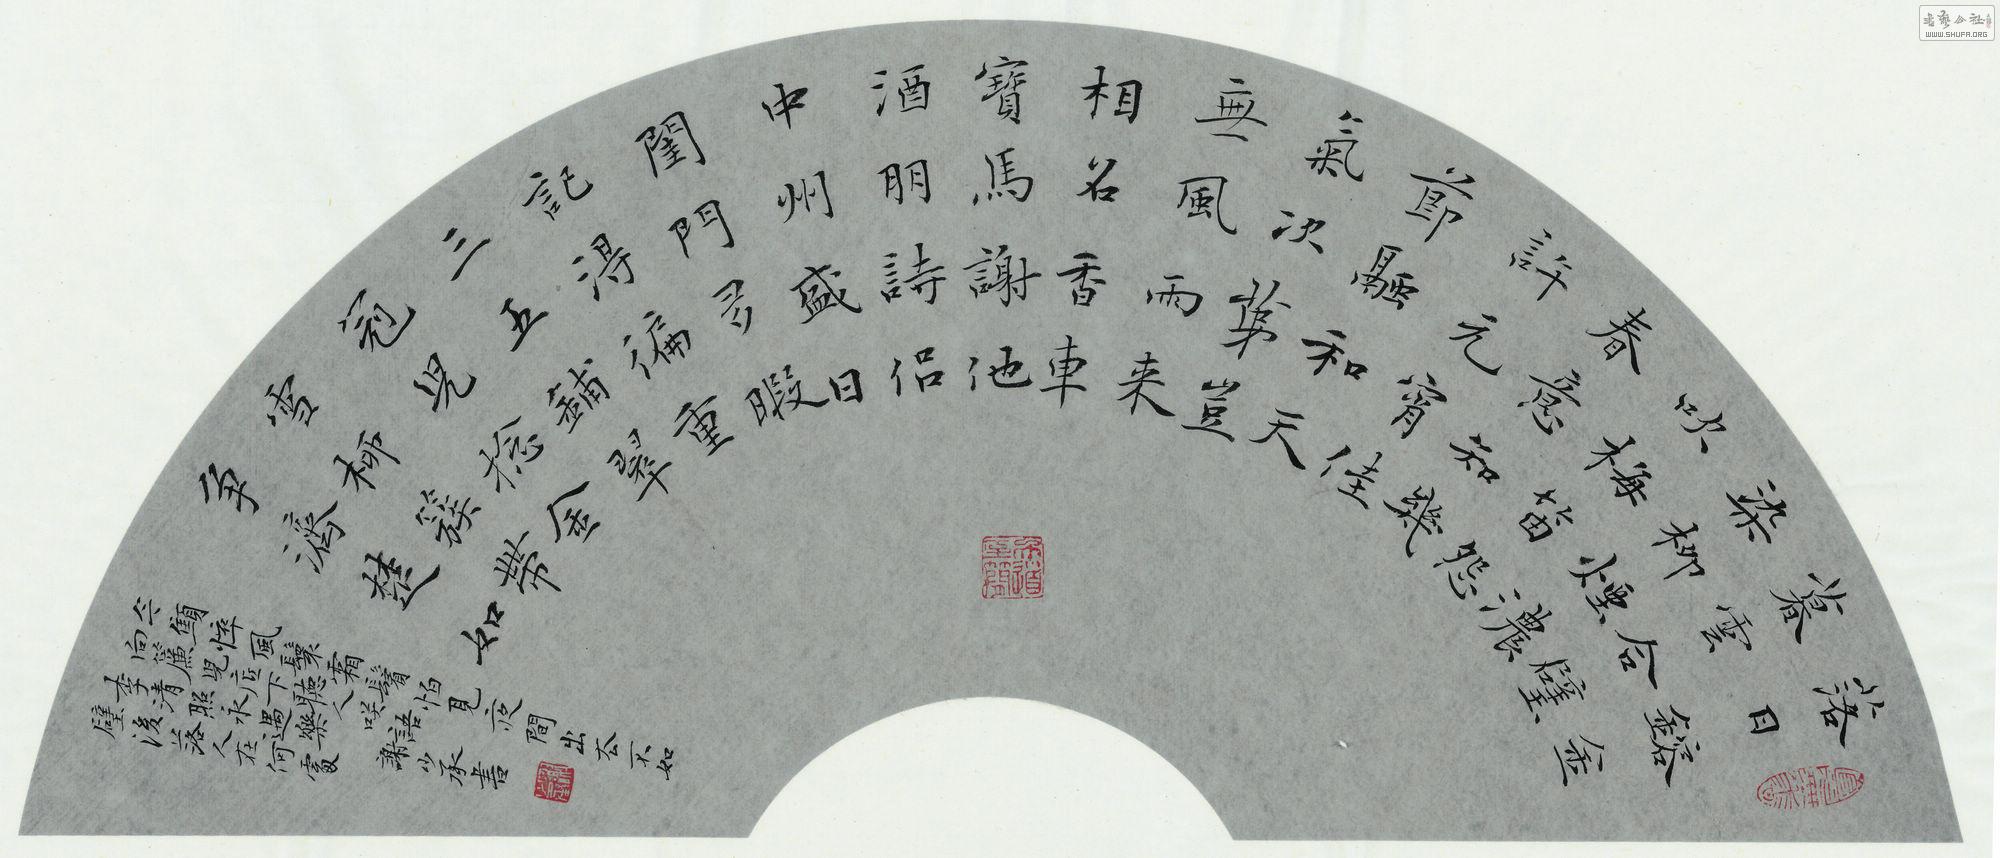 落日鎔金
暮雲合璧
染柳煙濃
吹梅笛怨
春意知幾
許元宵佳
節融和天
氣次第豈
無風雨来
相名香車
寶馬謝他
酒朋詩侶
中州盛日
閨門多暇
記得徧重
三五鋪翠
冠兒捻金
雪柳簇帶
爭濟楚如
今顦悴風鬟霜鬢怕見夜間出去不如
向簾兒底下聽人咲語
李清照永遇樂
璧後落人在何處 謝少承書
書藝公社
WWW.SHUFA.ORG